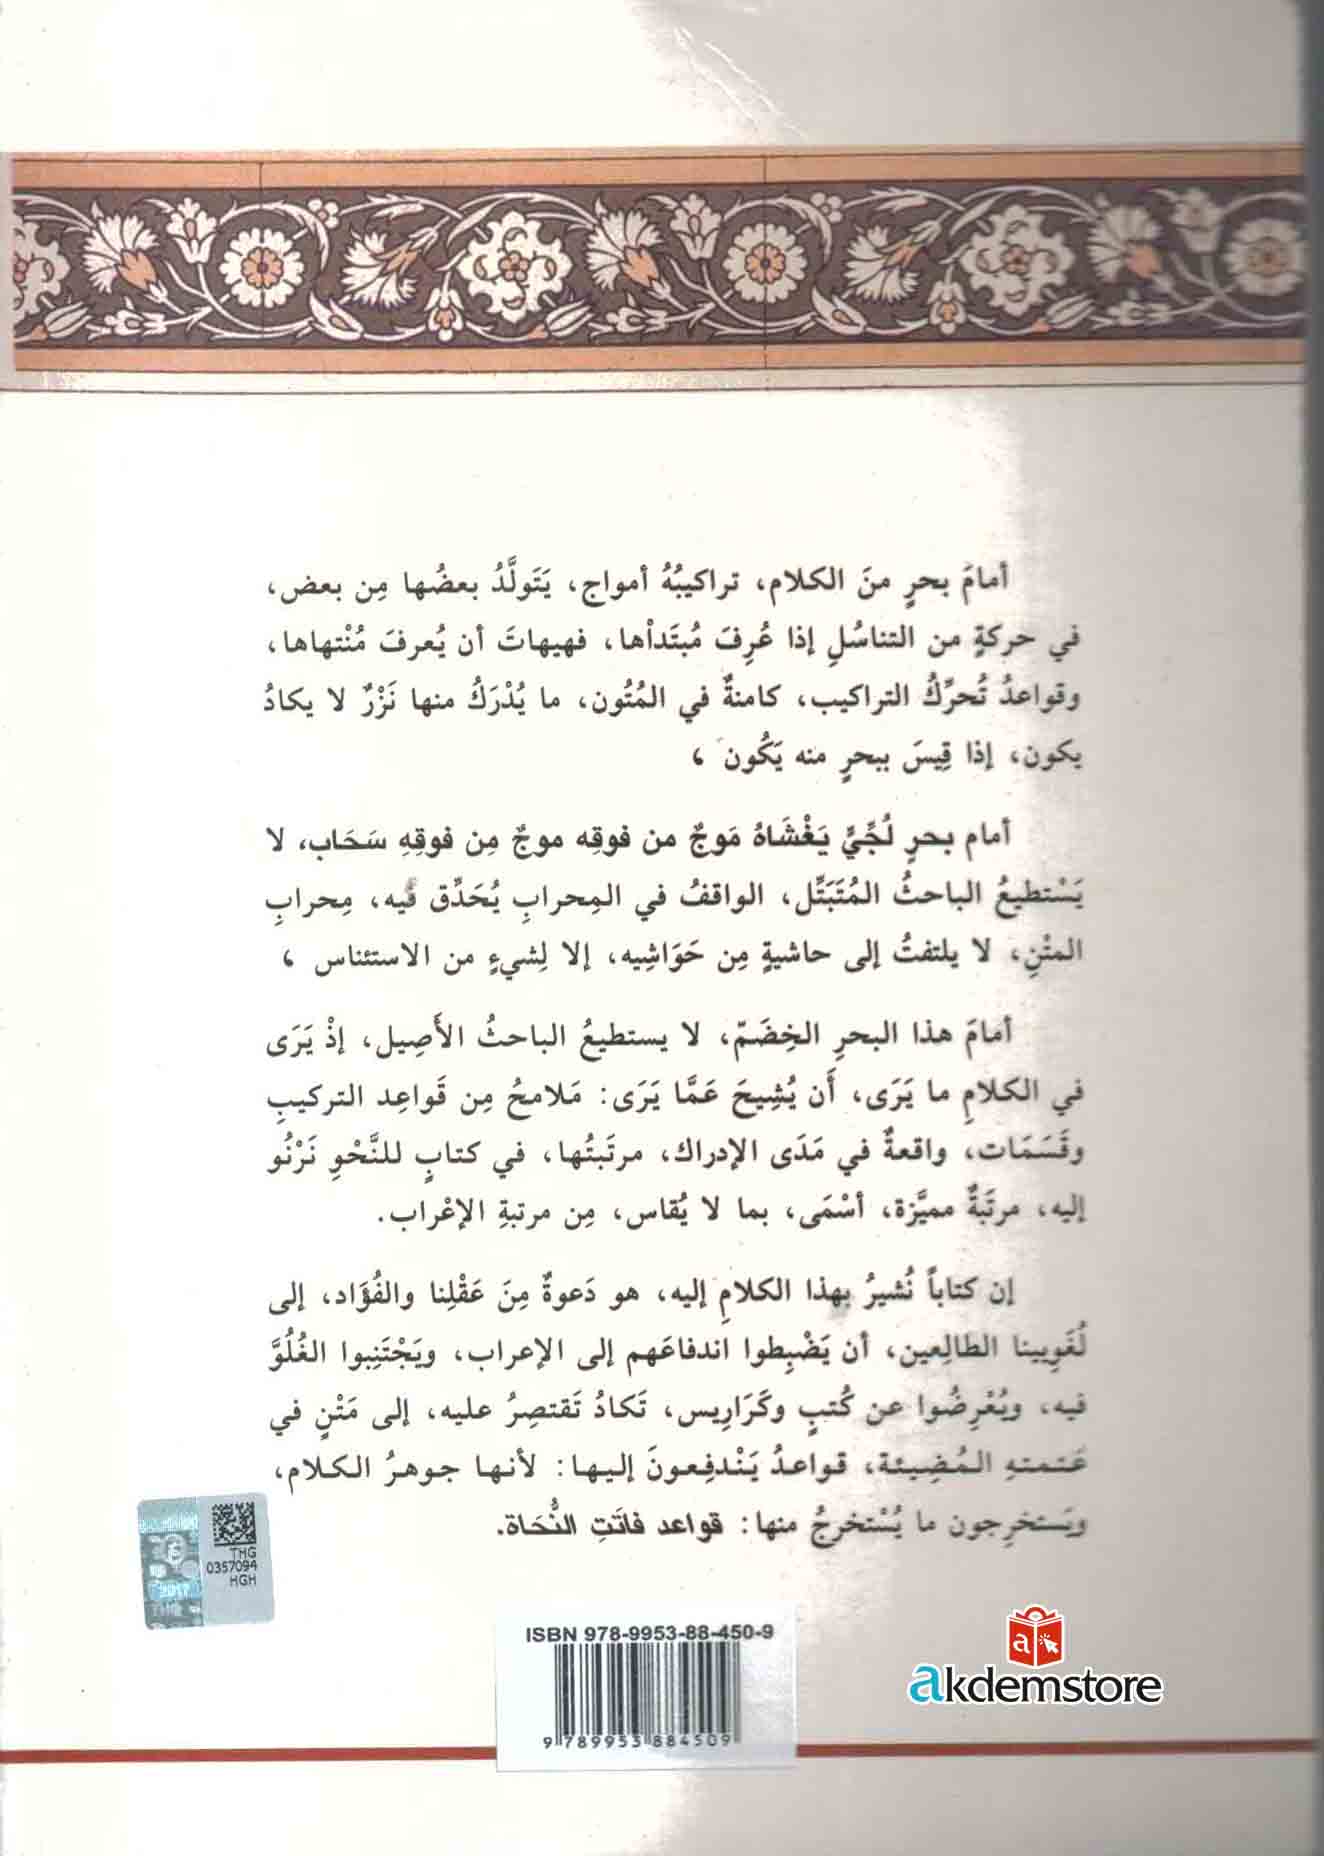 أمامَ بحرٍ منَ الكلام، تراكيبُهُ أمواج، يَتَولَّدُ بعضُها مِن بعض،
في حركةٍ من التناسُلِ إذا عُرِفَ مُبتَدأْها، فهيهاتَ أن يُعرفَ مُنْتهاها،
وقواعدُ تُحرِّكُ التراكيب، كامنةٌ في المُتُون، ما يُدْرَكُ منها نَزْرٌ لا يكادُ
يكون، إذا قِيسَ ببحرٍ منه يَكُون ،
أمام بحرٍ لُجِّيٍّ يَغْشَاهُ مَوجٌ من فوقِه موجٌ مِن فوقِهِ سَحَاب، لا
يَسْتطيعُ الباحثُ المُتَبَتِّل، الواقفُ في المِحرابِ يُحَدِّق فيه، مِحرابِ
المتْنِ، لا يلتفتُ إلى حاشيةٍ مِن حَوَاشِيه، إلا لِشيءٍ من الاستئناس ،
أمامَ هذا البحرِ الخِضَمّ، لا يستطيعُ الباحثُ الأَصِيل، إذْ يَرَى
في الكلامِ ما يَرَى، أَن يُشِيحَ عَمَّا يَرَى: مَلامحُ مِن قَواعِد التركيبِ
وقَسَمَات، واقعةٌ في مَدَى الإدراك، مرتَبتُها، في كتابٍ للنَّحْوِ نَرْنُو
إليه، مرتَبةٌ مميَّزة، أسْمَى، بما لا يُقاس، مِن مرتبةِ الإعْراب.
إن كتاباً نُشيرُ بهذا الكلامِ إليه، هو دَعوةٌ مِنَ عَقْلِنا والفُؤَاد، إلى
لُغَويينا الطالِعين، أن يَضْبِطوا اندفاعَهم إلى الإعراب، ويَجْتَنِبوا الغُلُوَّ
فيه، ويُعْرِضُوا عن كُتبٍ وكَرَارِيس، تَكادُ تَقتصِرُ عليه، إلى مَتْنٍ في
عَتمتهِ المُضِيئة، قواعدُ يَنْدفِعونَ إليها: لأنها جوهرُ الكلام،
ويَستخرِجون ما يُسْتخرجُ منها: قواعد فاتَتِ النُّحَاة.
THG
0357094
HGH
2017
ISBN 978-9953-88-450-9
9 789953 884509
a
akdemstore